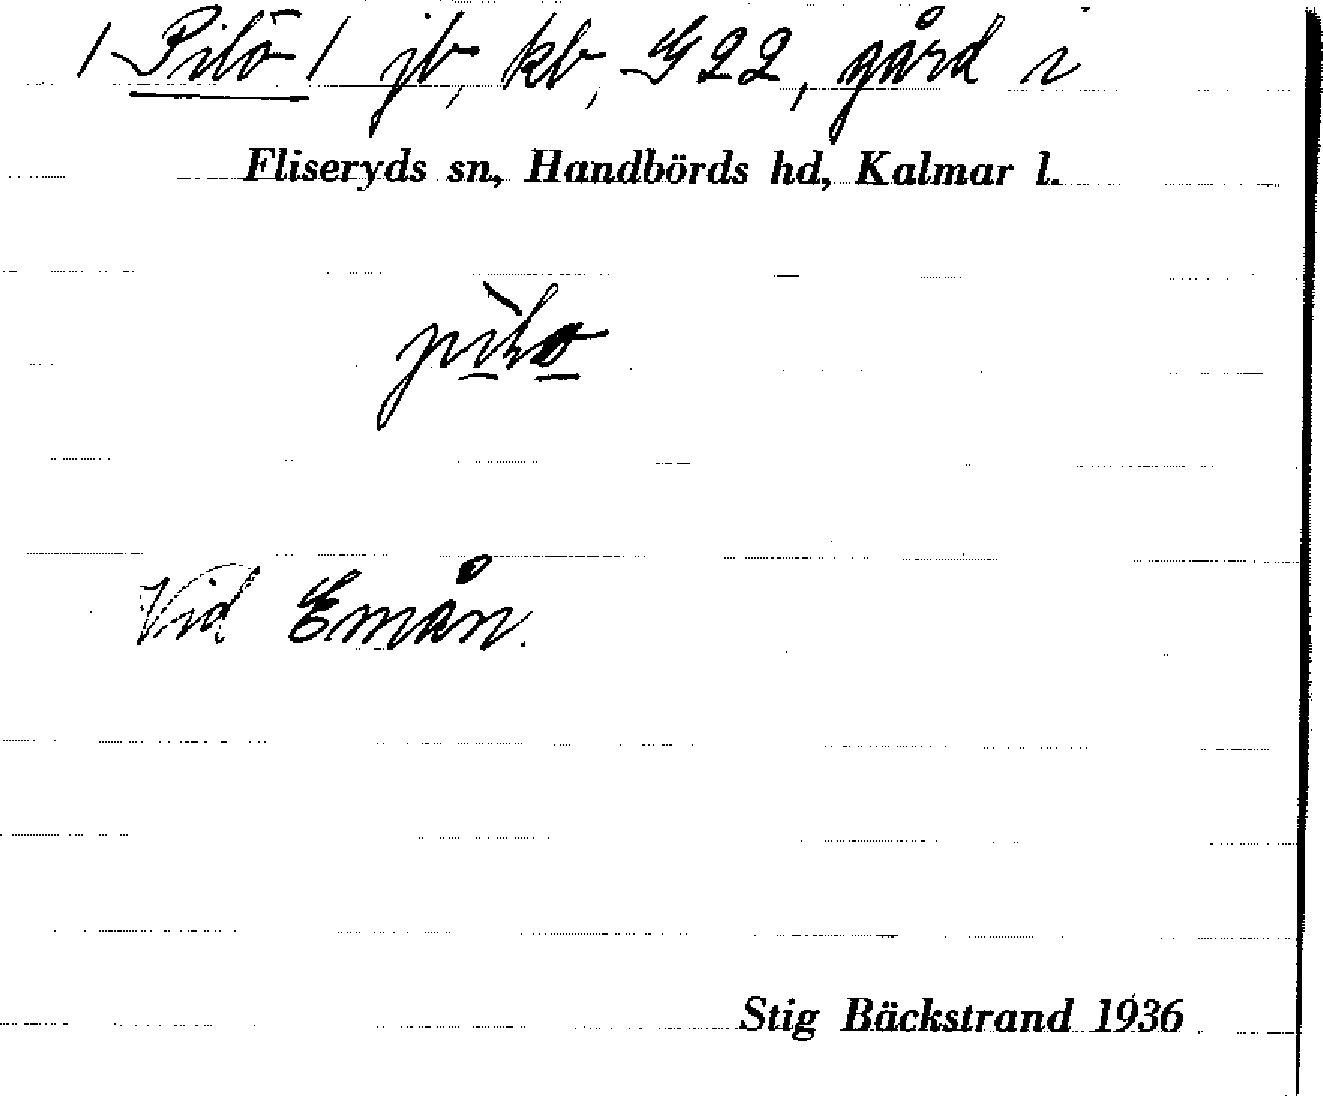 / Pilö / jb, kb, G 22, gård i
Fliseryds sn, Handbörds hd, Kalmar l.
Vid Emån.
Stig Bäckstrand 1936